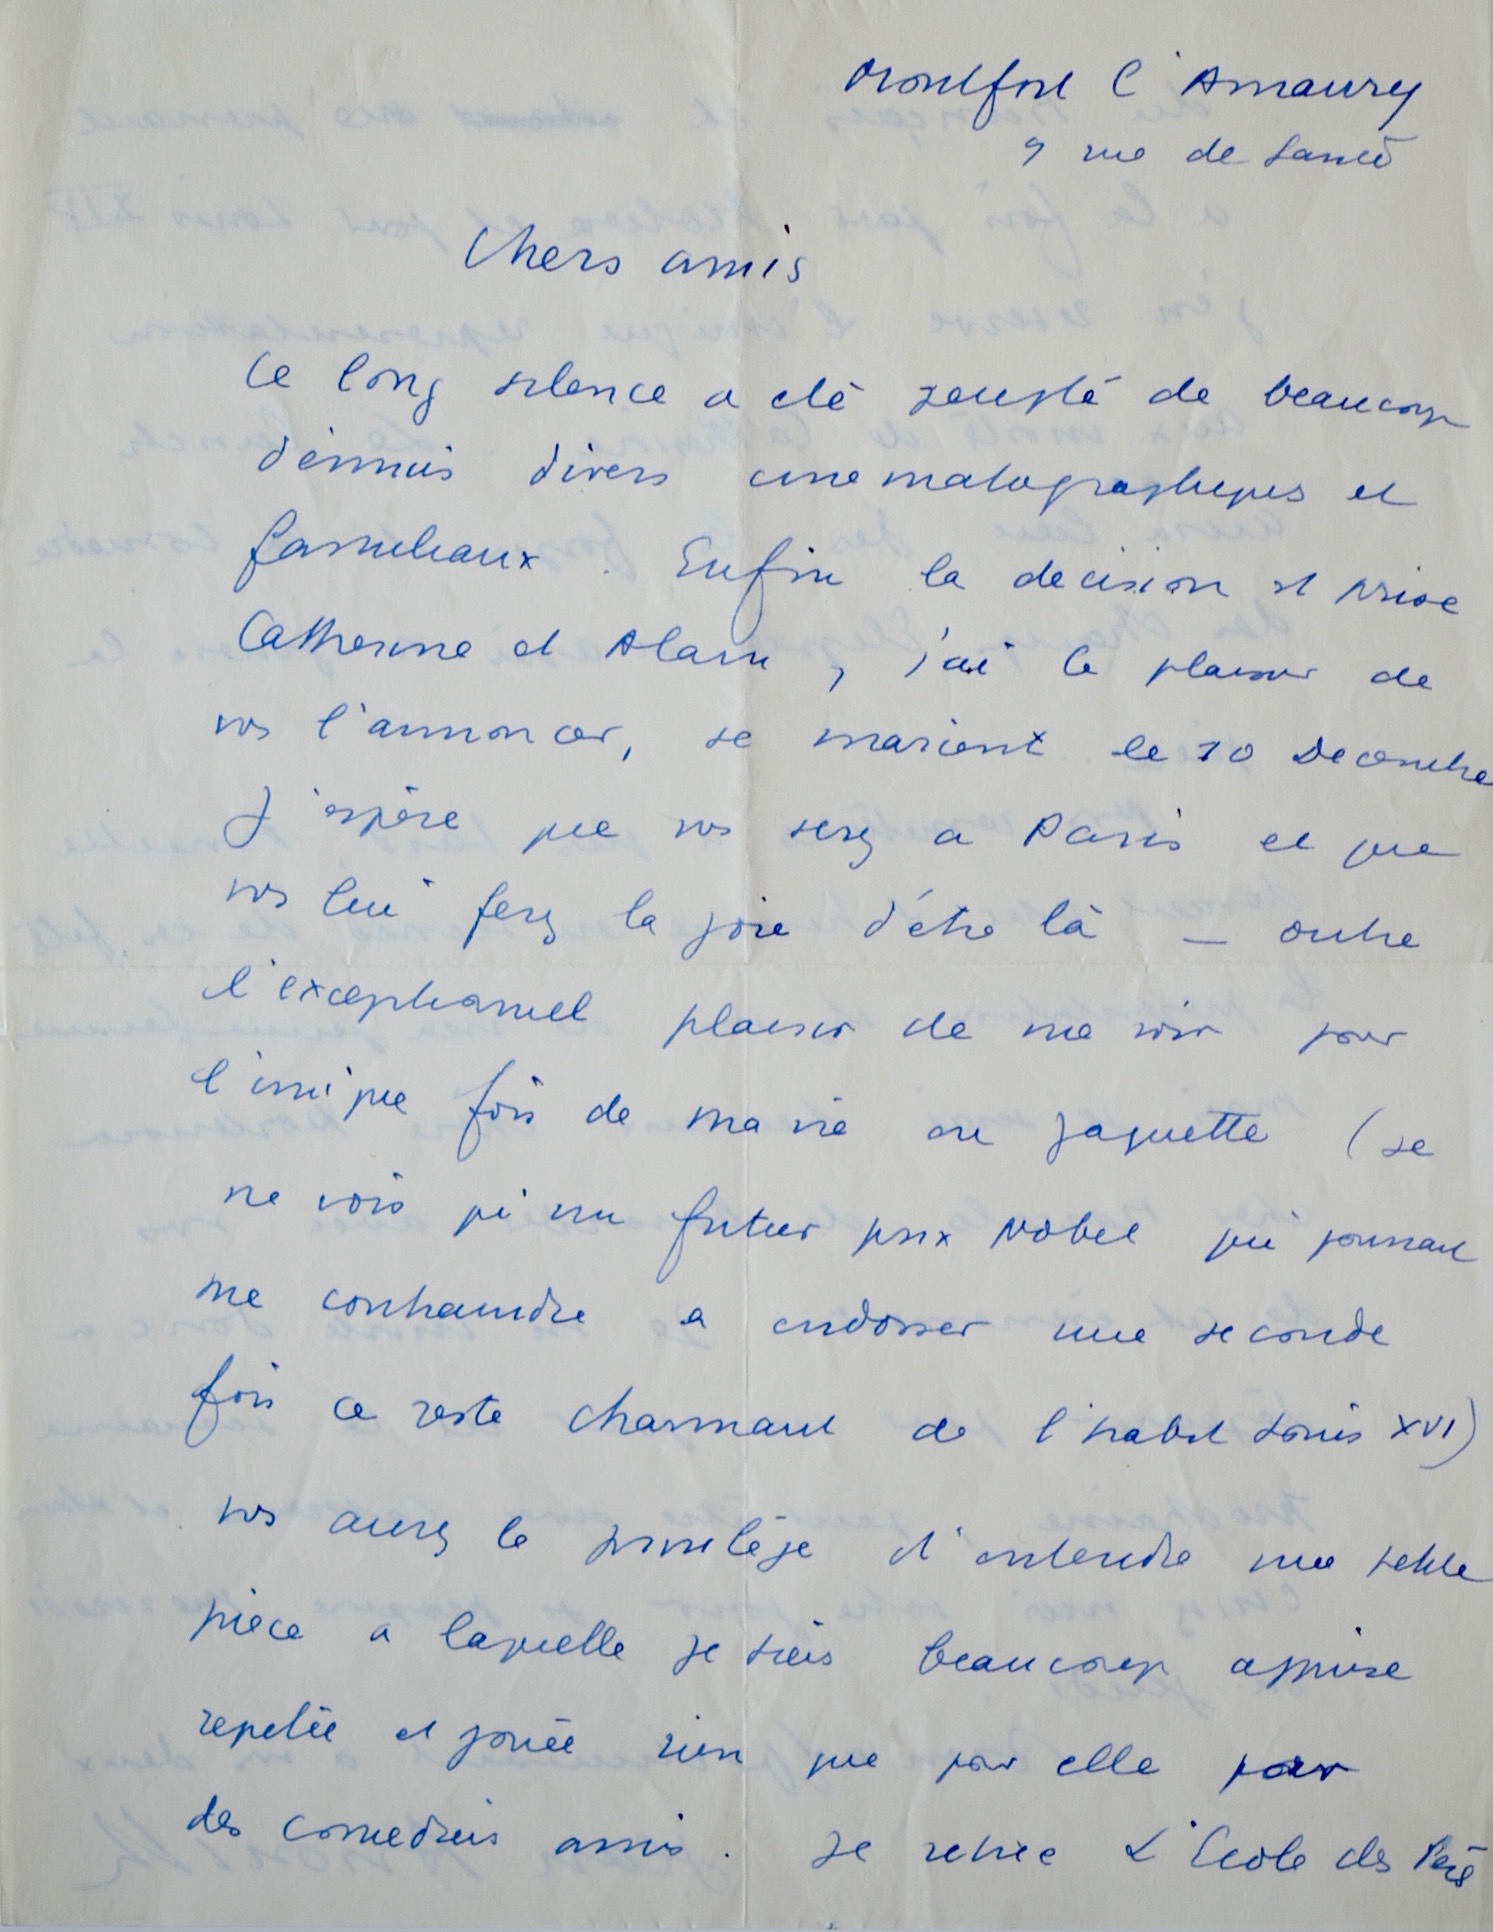 Montfort l'Amaury
9 rue de Sancé
Chers amis
Ce long silence a été peuplé de beaucoup
d'ennuis divers cinematographiques et
familiaux. Enfin la decision est prise
Catherine et Alain, j'ai le plaisir de
vs l'annoncer, se marient le 10 Decembre
J'espère que vs serez a Paris et que
vs lui ferez la joie d'être là – outre
l'exceptionnel plaisir de me voir pour
l'unique fois de ma vie en jaquette (je
ne vois qu'un futur prix Nobel qui pourrait
me contraindre a endosser une seconde
fois ce reste charmant de l'habit Louis XVI)
vs aurez le privilège d'entendre une petite
pièce a laquelle je tiens beaucoup apprise
repetée et jouée rien que pour elle par
des comediens amis. Je retire L'Ecole des Pères